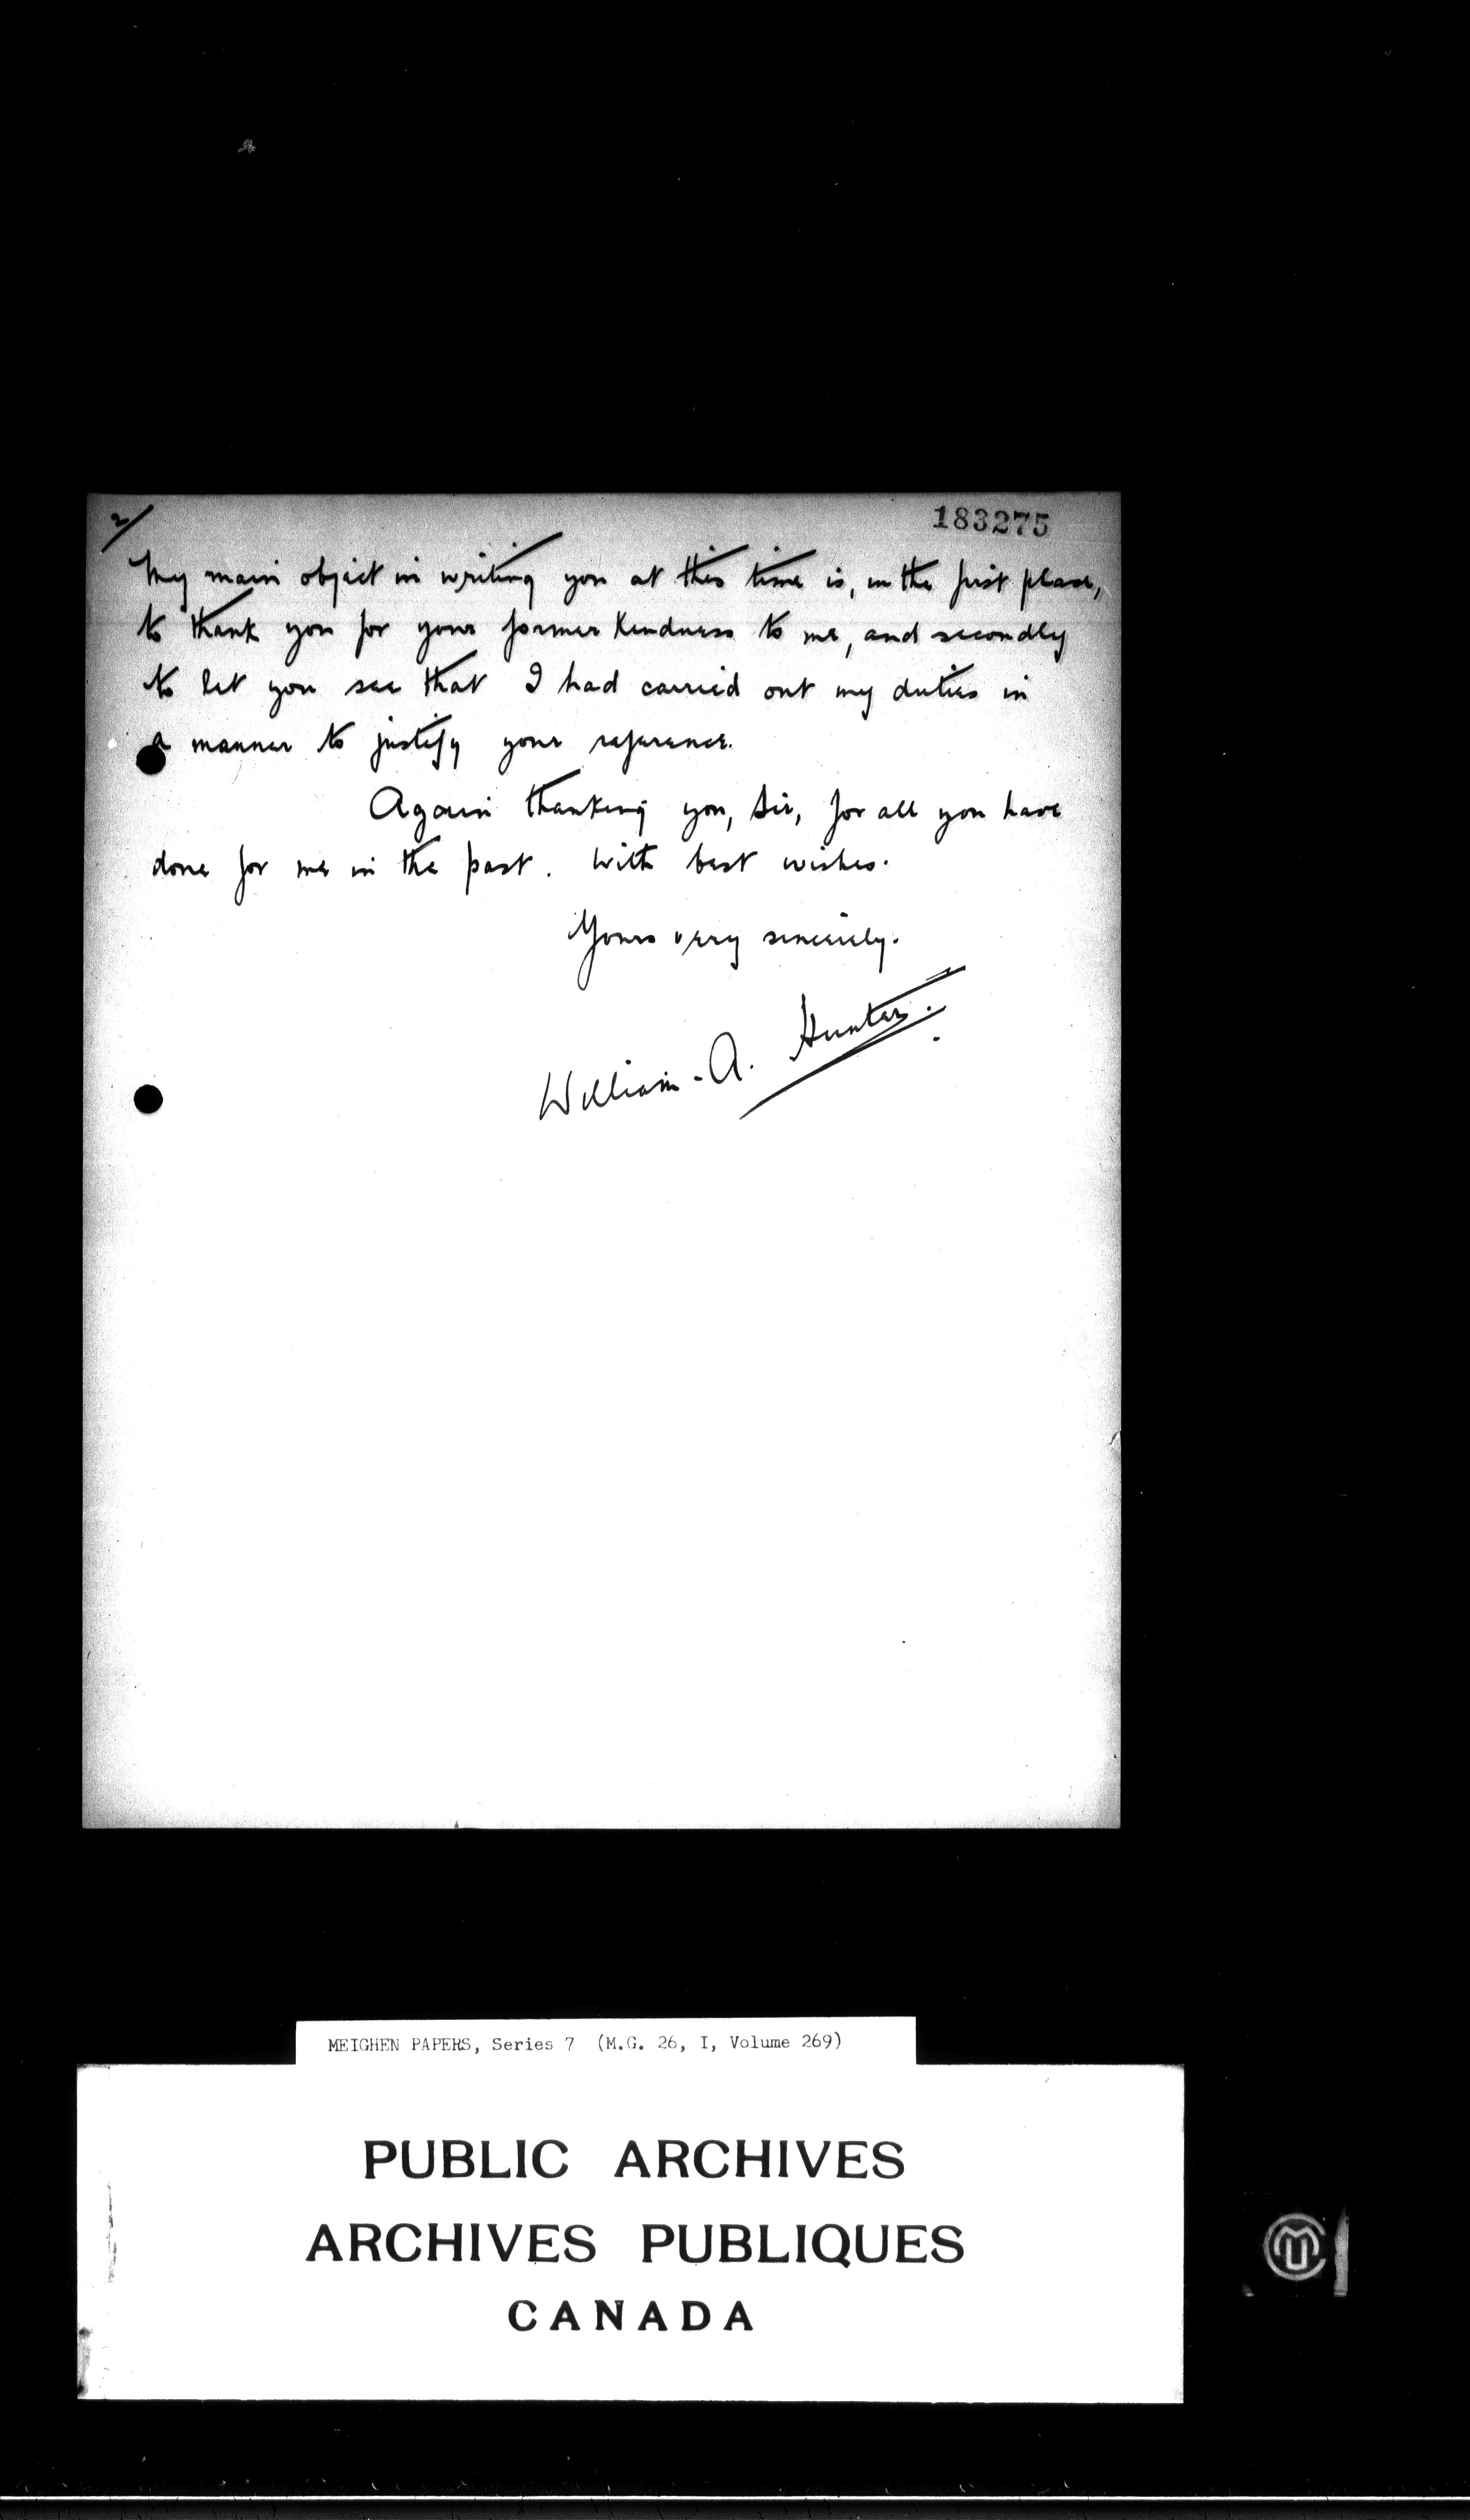 2/
183275
My main object in writing you at this time is, in the first place,
to thank you for your former kindness to me, and secondly
to let you see that I had carried out my duties in
a manner to justify your reference.
Again thanking you, Sir, for all you have
done for me in the past. With best wishes.
Yours very sincerely.
William. A. Hunter.
MEIGHEN PAPERS, Series 7 (M.G. 26, I, Volume 269)
PUBLIC ARCHIVES
ARCHIVES PUBLIQUES
CANADA